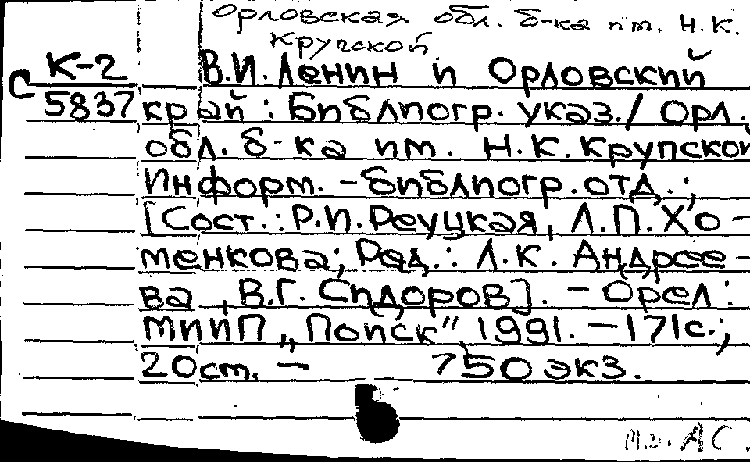 Орловская обл. б-ка им. Н.К.
Крупской
К-2 В.И. Ленин и Орловский
С 5837 край : Библиогр. указ. / Орл.
обл. б-ка им. Н.К. Крупской
Информ. - библиогр. отд. ;
[Сост. : Р.И. Реуцкая, Л.П. Хо-
менкова; Ред. : Л.К. Андрее-
ва, В.Г. Сидоров]. - Орел :
МИИП „Поиск“, 1991. - 171с. ;
20см. - 750 экз.
АС.